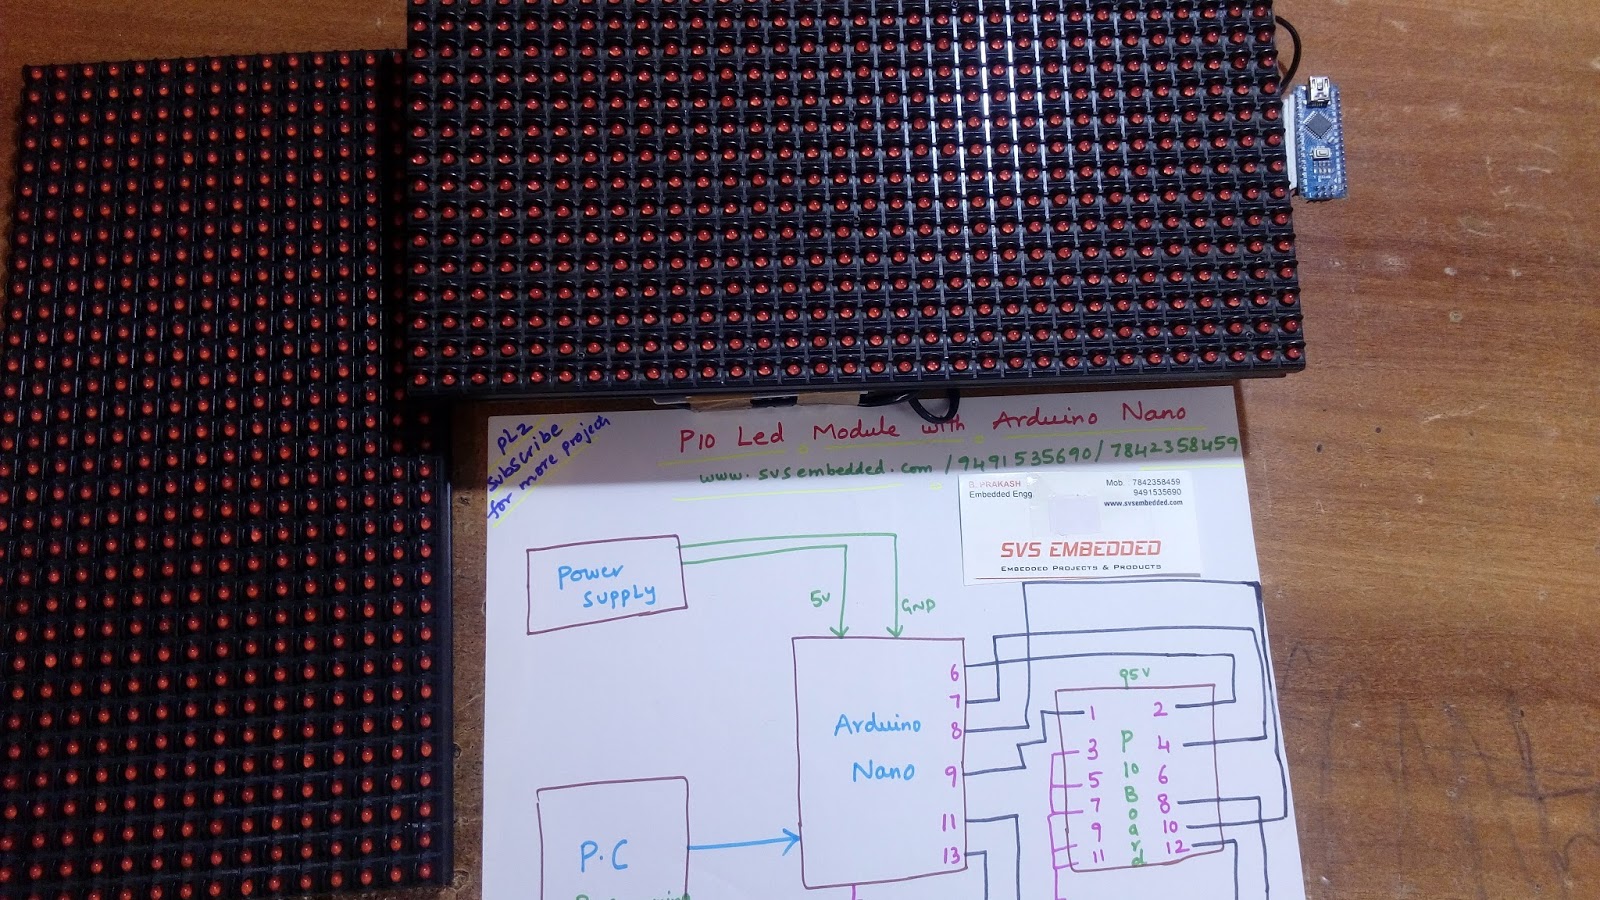 PLZ
subscribe
for more project
P10 Led Module with Arduino Nano
www.svsembedded.com /9491535690/7842358459
B. PRAKASH
Embedded Engg
Mob 7842358459
9491535690
www.svsembedded.com
SVS EMBEDDED
EMBEDDED PROJECTS & PRODUCTS
Power
supply
5V
GND
Arduino
Nano
6
7
8
9
11
13
95V
1 2
3 4
5 6
7 8
9 10
11 12
P
10
B
o
a
r
d
P.C